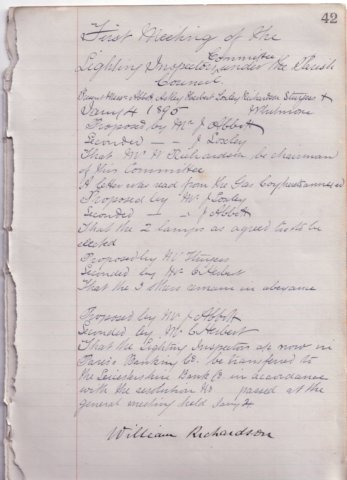 42
First Meeting of the
Committee
Lighting Inspectors under the Parish
Council
Present Messrs Abbott Astley Herbert Loxley Richardson Sturgess &
Jany 4 1895 Whitmore
Proposed by Mr J Abbott
Seconded — — J Loxley
That Mr W Richardson be chairman
of this Committee
A letter was read from the Gas Coy
Proposed by Mr J Loxley
Seconded — — J Abbott
That the 2 lamps as agreed to be
elected
Proposed by Mr Sturgess
Seconded by Mr C Herbert
That the 3 remain in abeyance
Proposed by Mr J Abbott
Seconded by Mr C Herbert
That the Lighting Inspectors a/c now in
Banking Co. be transferred to
the Leicestershire Bank Co in accordance
with the resolution No passed at the
general meeting held Jany 4
William Richardson